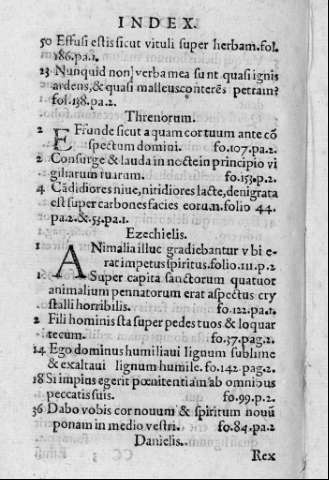 INDEX.
50 Effusi estis sicut vituli super herbam.fol.
186.pa.1.
23 Nunquid non verba mea sunt quasi ignis
ardens,& quasi malleus conterēs petram?
fol.138.pa.2.
Threnorum.
2 EFfunde sicut aquam cor tuum ante cō
spectum domini. fo.107.pa.2.
2 Consurge & lauda in nocte in principio vi
giliarum tuarum. fo.153.p.2.
4 Cādidiores niue, nitidiores lacte, denigrata
est super carbones facies eorum.folio 44.
pa.2.& 53.pa.1.
Ezechielis.
1 ANimalia illuc gradiebantur vbi e-
rat impetus spiritus.folio.111.p.2
1 Super capita sanctorum quatuor
animalium pennatorum erat aspectus cry
stalli horribilis. fo.122.pa.1.
2 Fili hominis sta super pedes tuos & loquar
tecum. fo.37.pag.2.
14 Ego dominus humiliaui lignum sublime
& exaltaui lignum humile. fo.142 pag.2.
18 Si impius egerit pœnitentiam ab omnibus
peccatis suis. fo.99.p.2.
36 Dabo vobis cor nouum & spiritum nouū
ponam in medio vestri. fo.84.pa.2
Danielis.
Rex